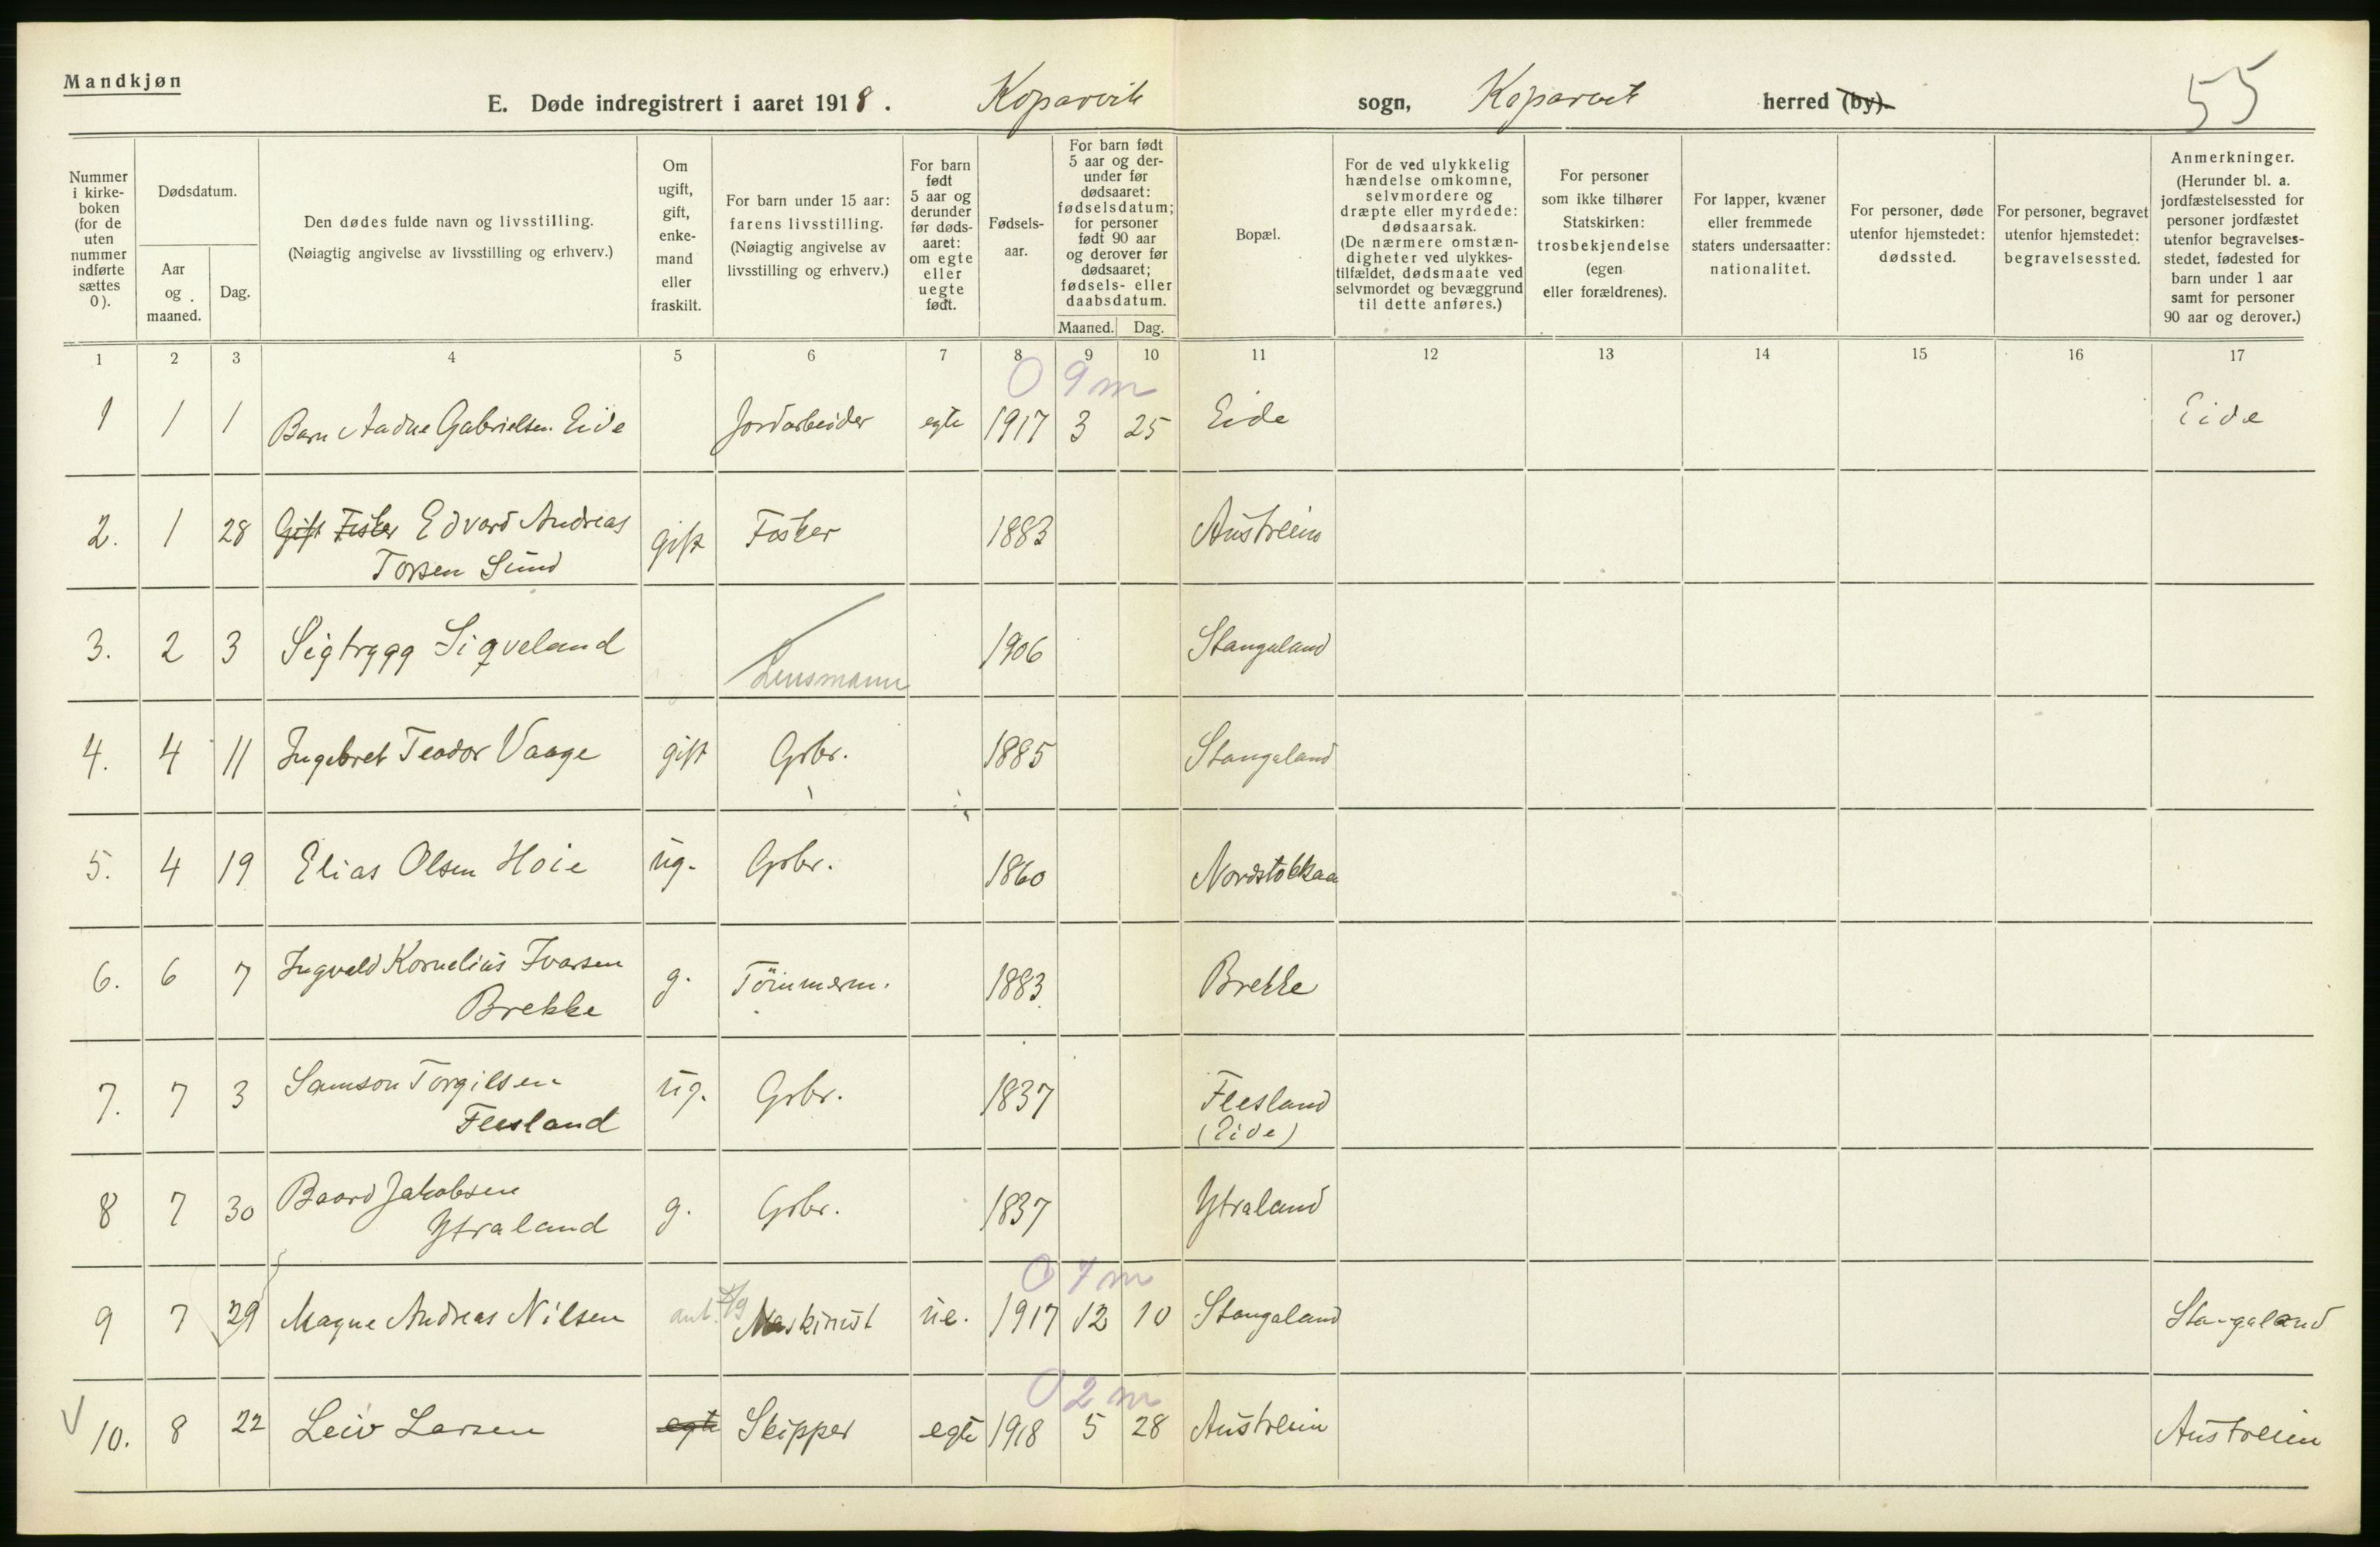 Mandkjøn
E. Døde indregistrert i aaret 1918. Kopervik sogn, Kopervik herred (by). 55
Nummer i kirke-boken (for de uten nummer indførte sættes 0).
Dødsdatum.
Aar og maaned.
Dag.
Den dødes fulde navn og livsstilling.
(Nøiagtig angivelse av livsstilling og erhverv.)
Om ugift, gift, enke-mand eller fraskilt.
For barn under 15 aar: farens livsstilling.
(Nøiagtig angivelse av livsstilling og erhverv.)
For barn født 5 aar og derunder før døds-aaret: om egte eller uegte født.
Fødsels-aar.
For barn født 5 aar og der-under før dødsaaret: fødselsdatum; for personer født 90 aar og derover før dødsaaret; fødsels- eller daabsdatum.
Maaned. Dag.
Bopæl.
For de ved ulykkelig hændelse omkomne, selvmordere og dræpte eller myrdede: dødsaarsak.
(De nærmere omstæn-digheter ved ulykkes-tilfældet, dødsmaate ved selvmordet og bevæggrund til dette anføres.)
For personer som ikke tilhører Statskirken: trosbekjendelse (egen eller forældrenes).
For lapper, kvæner eller fremmede staters undersaatter: nationalitet.
For personer, døde utenfor hjemstedet: dødssted.
For personer, begravet utenfor hjemstedet: begravelsessted.
Anmerkninger.
(Herunder bl. a. jordfæstelsessted for personer jordfæstet utenfor begravelses-stedet, fødested for barn under 1 aar samt for personer 90 aar og derover.)
1 2 3 4 5 6 7 8 9 10 11 12 13 14 15 16 17
0 9 m
1 1 1 Barn Aadne Gabrielsen Eide Jordarbeider egte 1917 3 25 Eide Eide
2. 1 28 Gift Fisker Edvard Andreas gift Fisker 1883 Austreim
Torsen Sund
3. 2 3 Sigtrygg Sigveland Lensmann 1906 Stangeland
4. 4 11 Ingebret Teodor Vaage gift Grbr. 1885 Stangeland
5. 4 19 Elias Olsen Hoie ug. Grbr. 1860 Nordstokkaa
6. 6 7 Ingvald Kornelius Ivarsen g. Tömmerm. 1883 Brekke
Brekke
7. 7 3 Samson Torgilsen ug. Grbr. 1837 Flesland
Flesland (Eide)
8 7 30 Baard Jakobsen g. Grbr. 1837 Ytraland
Ytraland
0 7 m
9 7 29 Magne Andreas Nilsen ant. Maskinist ue. 1917 12 10 Stangeland Stangaland
0 2 m
10. 8 22 Leiv Larsen egte Skipper egte 1918 5 28 Austreim Austreim